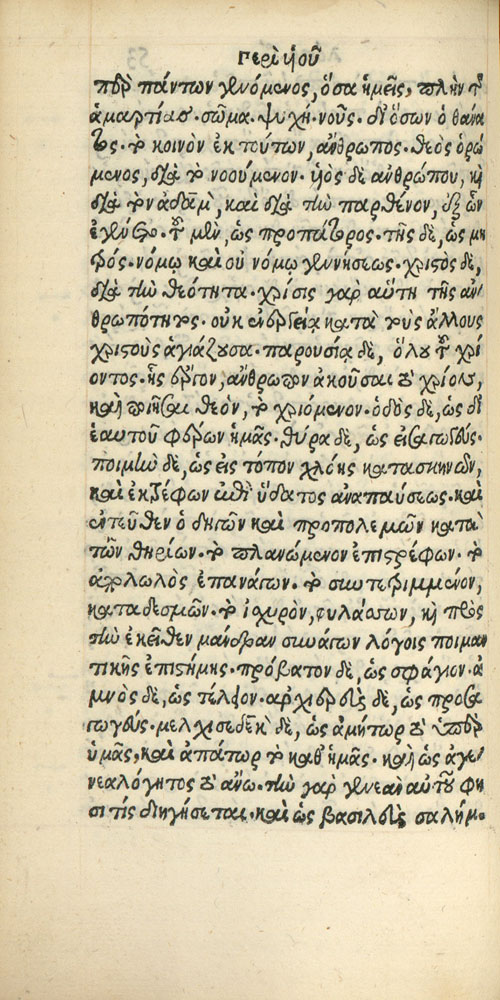 περὶ υἱοῦ
ὑπὲρ πάντων γενόμενος, ὅσα ἡμεῖς, πλὴν τῆς
ἁμαρτίας· σῶμα· ψυχή· νοῦς· δι' ὅσων ὁ θάνα
τος· τὸ κοινὸν ἐκ τούτων, ἄνθρωπος· θεὸς ὁρώ
μενος, διὰ τὸ νοούμενον· υἱὸς δὲ ἀνθρώπου, καὶ
διὰ τὸν ἀδὰμ, καὶ διὰ τὴν παρθένον, ἐξ ὧν
ἐγένετο· τοῦ μὲν, ὡς προπάτορος· τῆς δὲ, ὡς μη
τρός· νόμῳ καὶ οὐ νόμῳ γεννήσεως· χριστὸς δὲ,
διὰ τὴν θεότητα· χρίσις γὰρ αὕτη τῆς ἀν
θρωπότητος· οὐκ ἐνεργείᾳ κατὰ τοὺς ἄλλους
χριστοὺς ἁγιάζουσα· παρουσίᾳ δὲ, ὅλου τοῦ χρί
οντος· ἧς ἔργον, ἄνθρωπον ἀκοῦσαι τὸ χρίον,
καὶ ποιῆσαι θεὸν, τὸ χριόμενον· ὁδὸς δὲ, ὡς δι'
ἑαυτοῦ φέρων ἡμᾶς· θύρα δὲ, ὡς εἰσαγωγεύς·
ποιμὴν δὲ, ὡς εἰς τόπον χλόης κατασκηνῶν,
καὶ ἐκτρέφων ἐπὶ ὕδατος ἀναπαύσεως· καὶ
ἐντεῦθεν ὁδηγῶν καὶ προπολεμῶν κατὰ
τῶν θηρίων· τὸ πλανώμενον ἐπιστρέφων· τὸ
ἀπολωλὸς ἐπανάγων· τὸ συντετριμμένον,
καταδεσμῶν· τὸ ἰσχυρὸν, φυλάσσων, καὶ πρὸς
τὴν ἐκεῖθεν μάνδραν συνάγων λόγοις ποιμαν
τικῆς ἐπιστήμης· πρόβατον δὲ, ὡς σφάγιον· ἀ
μνὸς δὲ, ὡς τέλειον· ἀρχιερεὺς δὲ, ὡς προσα
γωγεύς· μελχισεδὲκ δὲ, ὡς ἀμήτωρ τὸ ὑπὲρ
ὑμᾶς, καὶ ἀπάτωρ τὸ καθ' ἡμᾶς· καὶ ὡς ἀγε
νεαλόγητος τὸ ἄνω· τὴν γὰρ γενεὰν αὐτοῦ φη
σι τίς διηγήσεται· καὶ ὡς βασιλεὺς σαλήμ·